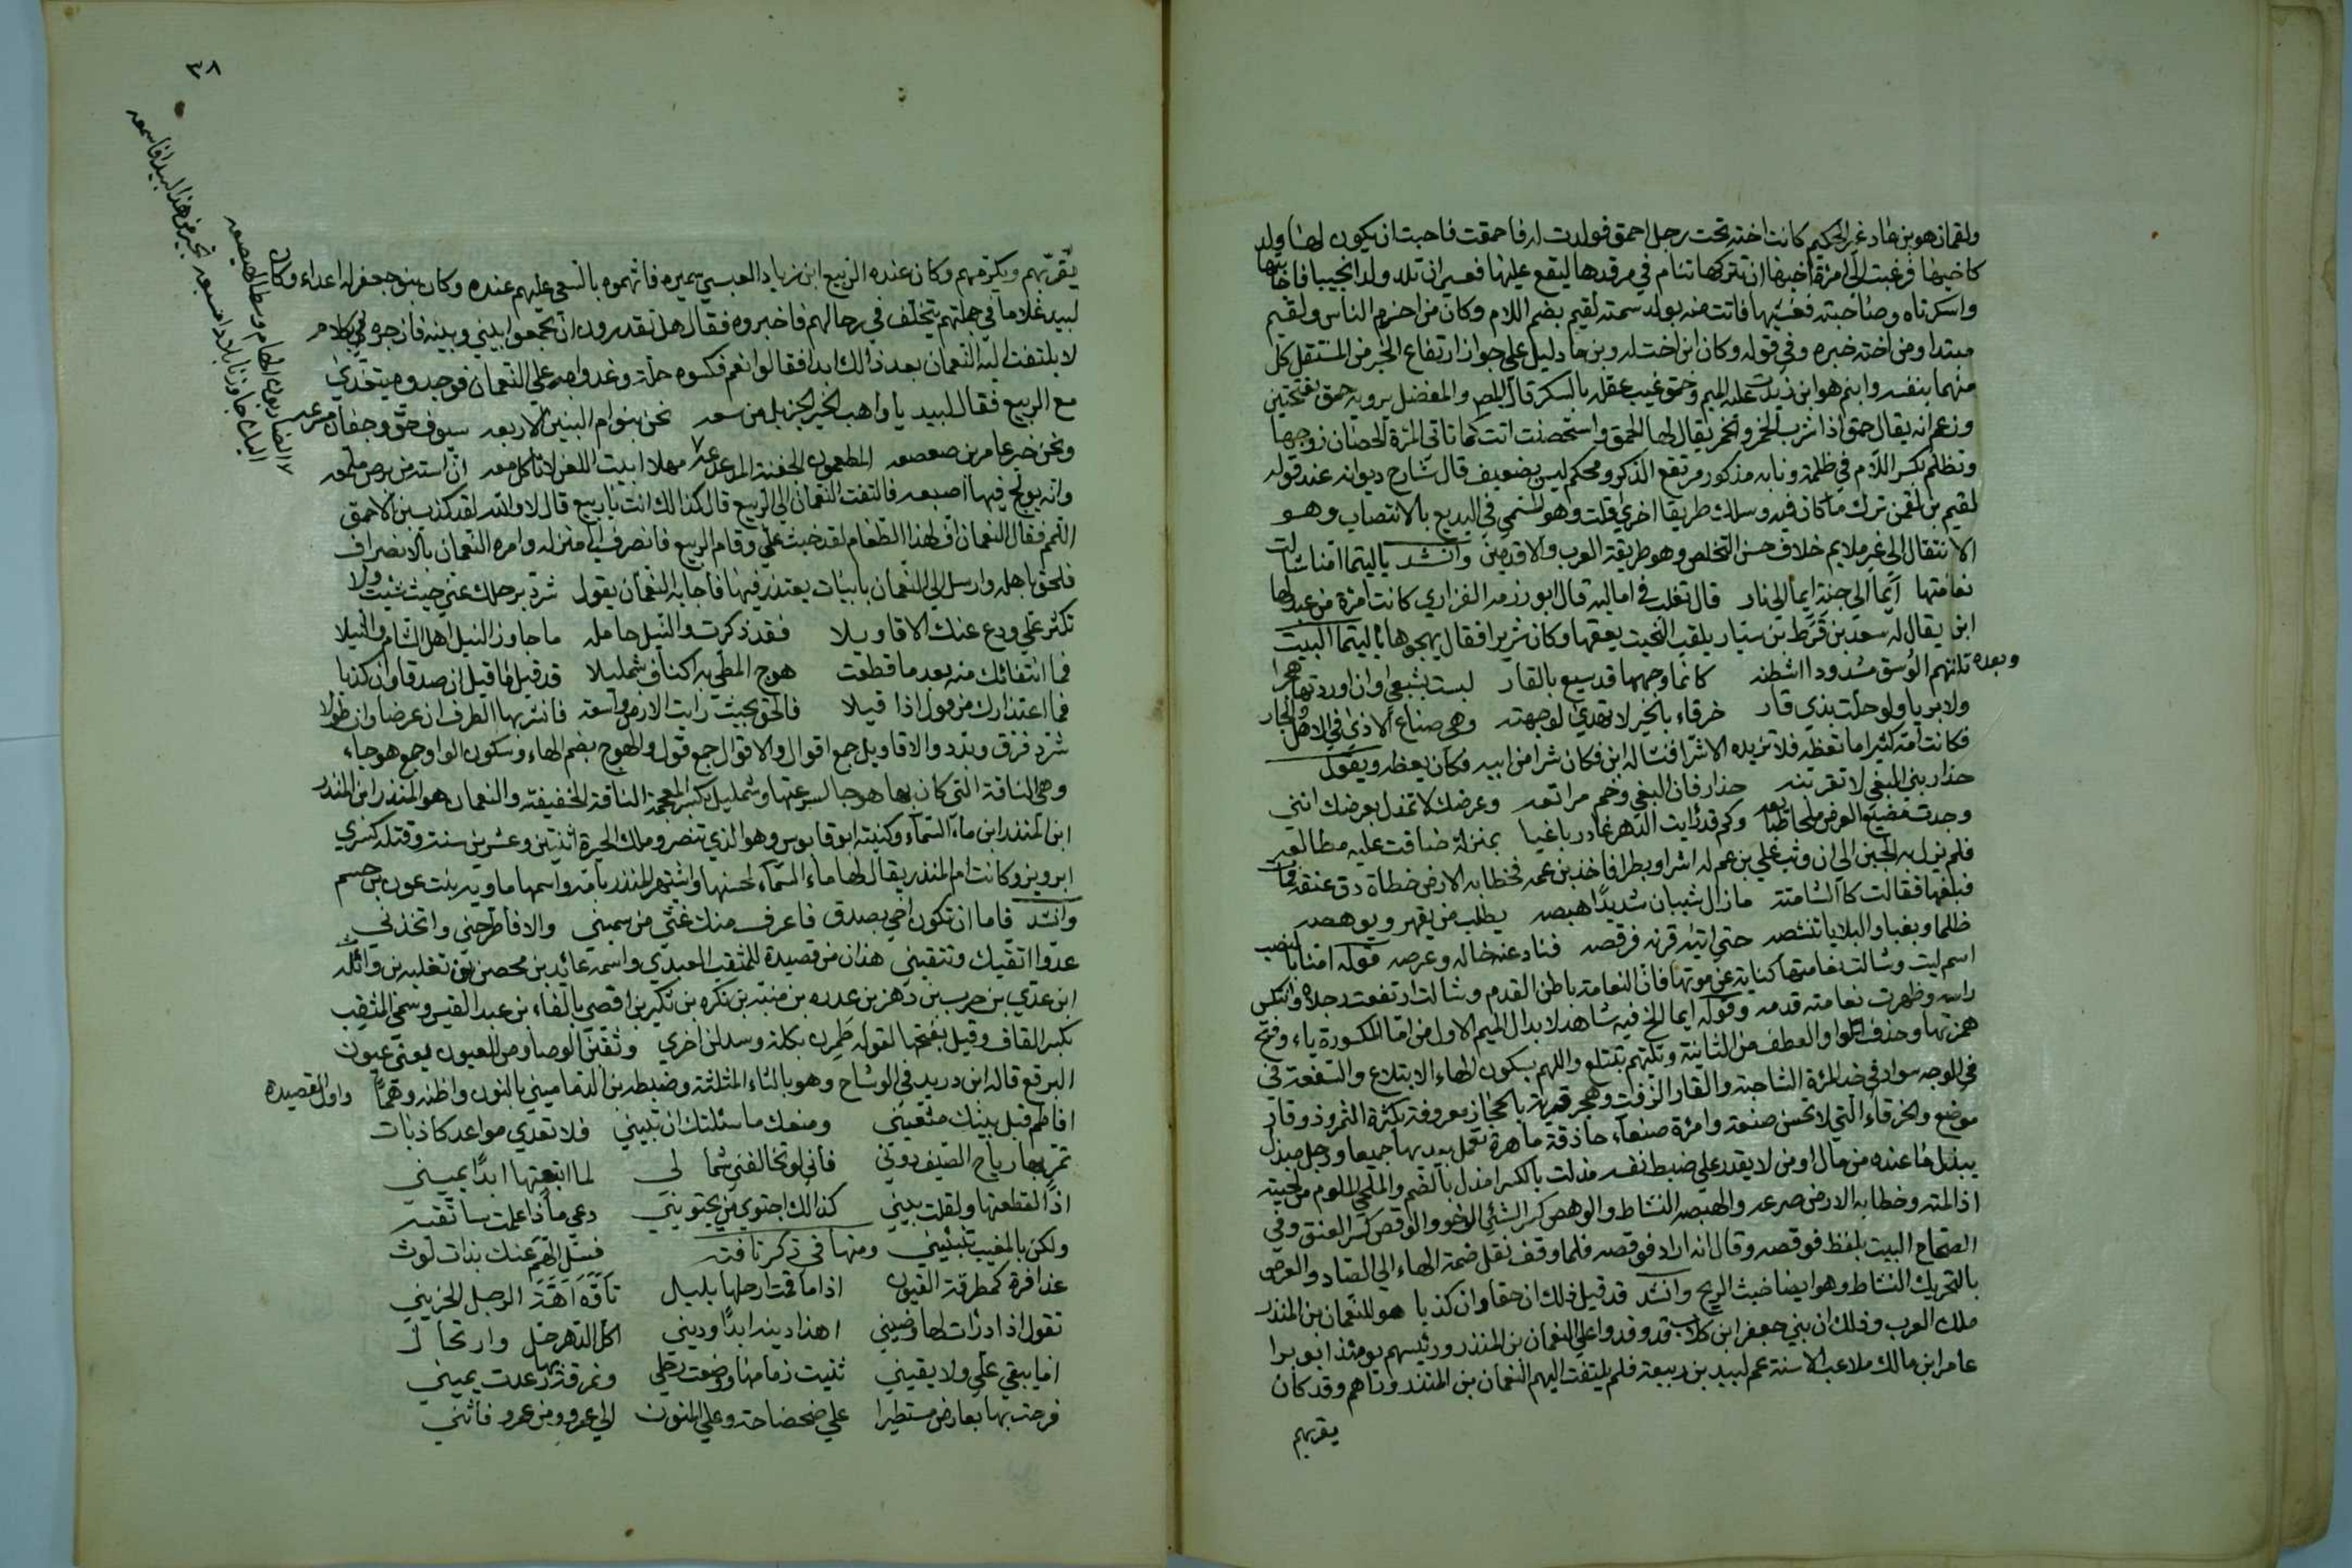 ولقمان هو بن عاد غير الحكيم كانت اخته تحت رجل احمق فولدت له فاحمقت فاحبت ان يكون لها ولد
كاخيها فرغبت الى امرئة اخيها ان تتركها تنام في مرقدها ليقع عليها فعسى ان تلد ولدا نجيبا فاجابتها
واسكرتاه وصاحبته فغشيها فاتت منه بولد سمته لقيم بضم اللام وكان من احزم الناس ولقيم
مبتدا ومن اخته خبره وفي قوله وكان ابن اخت له وبن ما دليل علي جواز ارتفاع الخبر من المنتقل كل
منهما بنفسه وابنم هو ابن زيدت عليه الميم وحمق غيب عقله بالسكر قال المص والمفضل يرويه حمق بفتحتين
وزعم انه يقال حمق اذا شرب الخمر والخمر يقال لها الحمق واستحصنت اتت كما تاتي المرئة الحصان زوجها
وتظلم بكسر اللام في ظلمة ونابه مذكور مرتفع الذكر ومحكم ليس بضعيف قال شارح ديوانه عند قوله
لقيم بن لقمن ترك ما كان فيه وسلك طريقا اخري قلت وهو المسمي في البديع بالاقتضاب وهو
الانتقال الي غير ملايم خلاف حسن التخلص وهو طريقة العرب والاقدمين وانشد ياليتما امنا شالت
نعامتها ايما الي جنة ايما الي نار قال ثعلب في اماليه قال ابو رزمه الفزاري كانت امرئة من عبد لها
ابن يقال له سعد بن قرط بن سيار يلقب النحيت يعقها وكان شريرا فقال يهجوها ياليتما البيت
وبعده تلتهم الوسق مشدودا اشظته كانما وجهها قد سيع بالقار ليست بشبعي وان اوردتها هجرا
ولا بريا ولو حلت بذي قار خرقاء بالخير لا تهدي لوجهته وهي صناع الاذي في الاهل والجار
فكانت امه كثيرا ما تعظه فلا تزيده الا شرا فنشا له ابن فكان شرا من ابيه فكان يعظه ويقول
حذار بني البغي لا تقربنه حذار فان البغي وخم مراتعه وعرضك لا تمذل بعرضك انني
وجدت مضيع العرض تلحا طبايعه وكم قد رايت الدهر غادر باغيا بمنزلة ضاقت عليه مطالعه
فلم يزل به الحين الي ان وثب علي بن عم له اشرا وبطرا فاخذ بن عمه فخطا به الارض خطاة دق عنقه فمات
فبلغها فقالت كالشامتة ما زال شيبان شديدا هبصه يطلب من يقهره ويوهصه
ظلما وبغيا والبلايا تنشصه حتي اتيه قرنه فوقصه فناد عنه خاله وعرصه قوله امنا بالنصب
اسم ليت وشالت نعامتها كناية عن موتها فان النعامة باطن القدم وشالت ارتفعت رجلاه وانتكس
راسه وظهرت نعامته قدمه وقوله ايما الخ فيه شاهد لابدال الميم الاول من اما المكسورة ياء وفتح
همزتها وحذف الواو العطف من الثانية وتلتهم تبتلع واللهم بسكون الهاء الابتلاع والسفعة في
في الوجه سواد في خد المرئة الشاحبة والقار الزفت وهجر قرية بالحجاز معروفة بكثرة الثمر وذوقار
موضع والخرقاء التي لا تحسن صنعة وامرئة صنعاء حاذقة ماهرة تعمل بيديها جميعا ورجل مبذل
يبذل ما عنده من مال او من لا يقدر علي ضبط نفسه مذلت بالكسر امذل بالضم والملحي الملوم من لحيته
اذا لمته وخطا به الارض صرعه والهبصه النشاط والوهص كسر الشئي الرخو والوقص كسر العنق وفي
الصحاح البيت بلفظ فوقصه وقال انه اراد فوقصه فلما وقف نقل ضمة الهاء الي الصاد والعرص
بالتحريك النشاط وهو ايضا خبث الريح وانشد قد قيل ذلك ان حقا وان كذبا هو للنعمان بن المنذر
ملك العرب وذلك ان بني جعفر ابن كلاب قد وفدوا علي النعمان بن المنذر ورئيسهم يومئذ ابو برا
عامر ابن مالك ملاعب الاسنة عم لبيد بن ربيعة فلم يلتفت اليهم النعمان بن المنذر وتاهم وقد كان
يقربهم
٣٨
يقربهم ويكرمهم وكان عنده الربيع ابن زياد العبسي سميره فاتهموه بالسعي عليهم عنده وكان بنو جعفر له اعداء وكان
لبيد غلاما في جملتهم يتخلف في رحالهم فاخبروه فقال هل تقدرون ان تجمعوا بيني وبينه فازجره بكلام
لا يلتفت اليه النعمان بعد ذالك ابدا فقالوا نعم فكسوه حلة وغدوا به علي النعمان فوجدوه يتغدي
مع الربيع فقال لبيد يا واهب الخير الجزيل من سعه نحن بنوام البنين الاربعه سيوف حق وجفان مترعه
ونحن خير عامر بن صعصعه المطعمون الجفنة المدعدعه مهلا ابيت اللعن لا تاكل معه ان استه من برص ملمعه
وانه يولج فيها اصبعه فالتفت النعمان الي الربيع قال كذالك انت ياربيع قال لا والله لقد كذب بن الاحمق
اللئم فقال النعمان اف لهذا الطعام لقد خبث علي وقام الربيع فانصرف الي منزله وامره النعمان بالانصراف
فلحق باهله وارسل الي النعمان بابيات يعتذر فيها فاجابه النعمان يقول شرد برحلك عني حيث شئت ولا
تكثر علي ودع عنك الاقاويلا فقد ذكرت والنيل حامله ما جاوز النيل اهل الشام والنيلا
فما انتفائك منه بعد ما قطعت هوج المطي به اكناف شمليلا قد قيل ما قيل ان صدقا وان كذبا
فما اعتذارك من قول اذا قيلا فالحق بحيث رايت الارض واسعة فانشر بها الطرف ان عرضا وان طولا
شرد فرق وبدد والاقاويل جمع اقوال والاقوال جمع قول والهوج بضم الهاء وسكون الواو جمع هوجاء
وهي الناقة التي كان بها هوجا لسرعتها وشمليل بكسر المعجمة الناقة الخفيفة والنعمان هو المنذر ابن المنذر
ابن المنذر ابن ماء السماء وكنيته ابو قابوس وهو الذي تنصر وملك الحيرة اثنتين وعشرين سنة وقتله كسري
ابرويز وكانت ام المنذر يقال لها ماء السماء لحسنها واشتهر المنذر بامه واسمها ماويه بنت عوف بن جسم
وانشد فاما ان تكون اخي بصدق فاعرف منك غثي من سميني والا فاطرحني واتخذني
عدوا اتقيك وتتقيني هذان من قصيدة للمثقب العبدي واسمه عائد بن محصن بن ثعلبة بن وائله
ابن عدي بن حرب بن دهن بن عدره بن منبه بن نكره بن لكيز بن افصي بالفاء بن عبد القيس وسمي المثقب
بكسر القاف وقيل بفتحها لقوله ظهرن بكلة وسدلن اخري وثقبن الوصاوص للعيون يعني عيون
البرقع قاله ابن دريد في الوشاح وهو بالثاء المثلثة وضبطه بن الدماميني بالنون واظنه وهما واول القصيده
افاطم قبل بينك متعيني ومنعك ما سئلتك ان تبيني فلا تعدي مواعد كاذبات
تمر بها رياح الصيف دوني فاني لو تخالفني شمالي لما اتبعتها ابدا يميني
اذا لقطعتها ولقلت بيني كذالك اجتوي من يجتويني دعي ماذا علمت ساتقيه
ولكن بالمغيب نبئيني ومنها في ذكر ناقته فسل الهم عنك بذات لوث
عذافرة كمطرقة القيون اذا ما قمت ارحلها بليل تاوه اهة الرجل الحزيني
تقول اذا درات لها وضيني اهذا دينه ابدا وديني اكل الدهر حل وارتحال
اما يبقي علي ولا يقيني ثنيت زمامها ووضعت رحلي ونمرقة رعدت بها يميني
فرحت بها بعارض مستطيرا علي ضحضاحة وعلي المنون الي عمرو ومن عمرو فاتني
والضاربون الهام وسط الخيضعه
اليك جاوزنا بلادا مسبعه تخبر عن هذا لبيدا فاسمعه